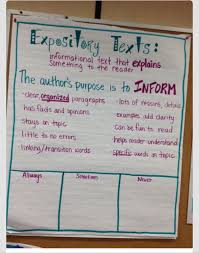 Expository Texts:
informational text that explains
something to the reader
The author's purpose is to INFORM
-clear, organized paragraphs
has facts and opinions
stays on topic
little to no errors
linking/transition words
-lots of reasons, details
examples add clarity
can be fun to read
helps reader understand
specific words on topic
Always
Sometimes
Never